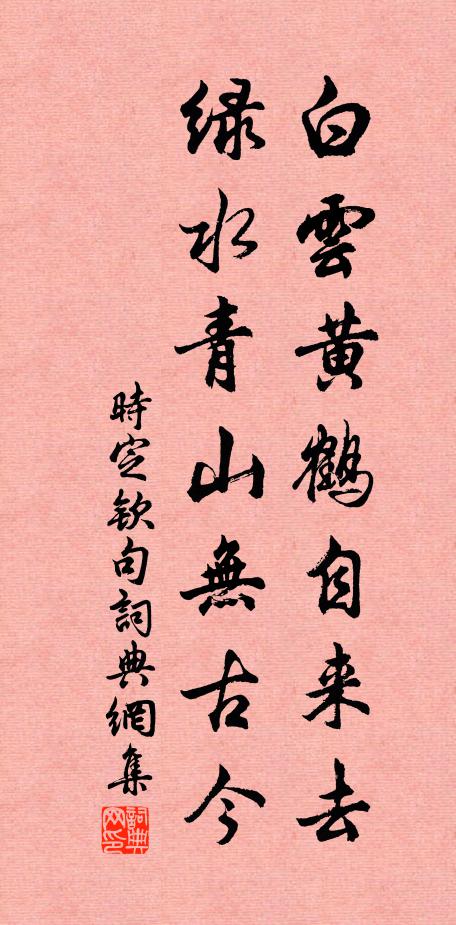 白雲黃鶴自来去
绿水青山無古今
時定欽句詞典網集
詞典网印